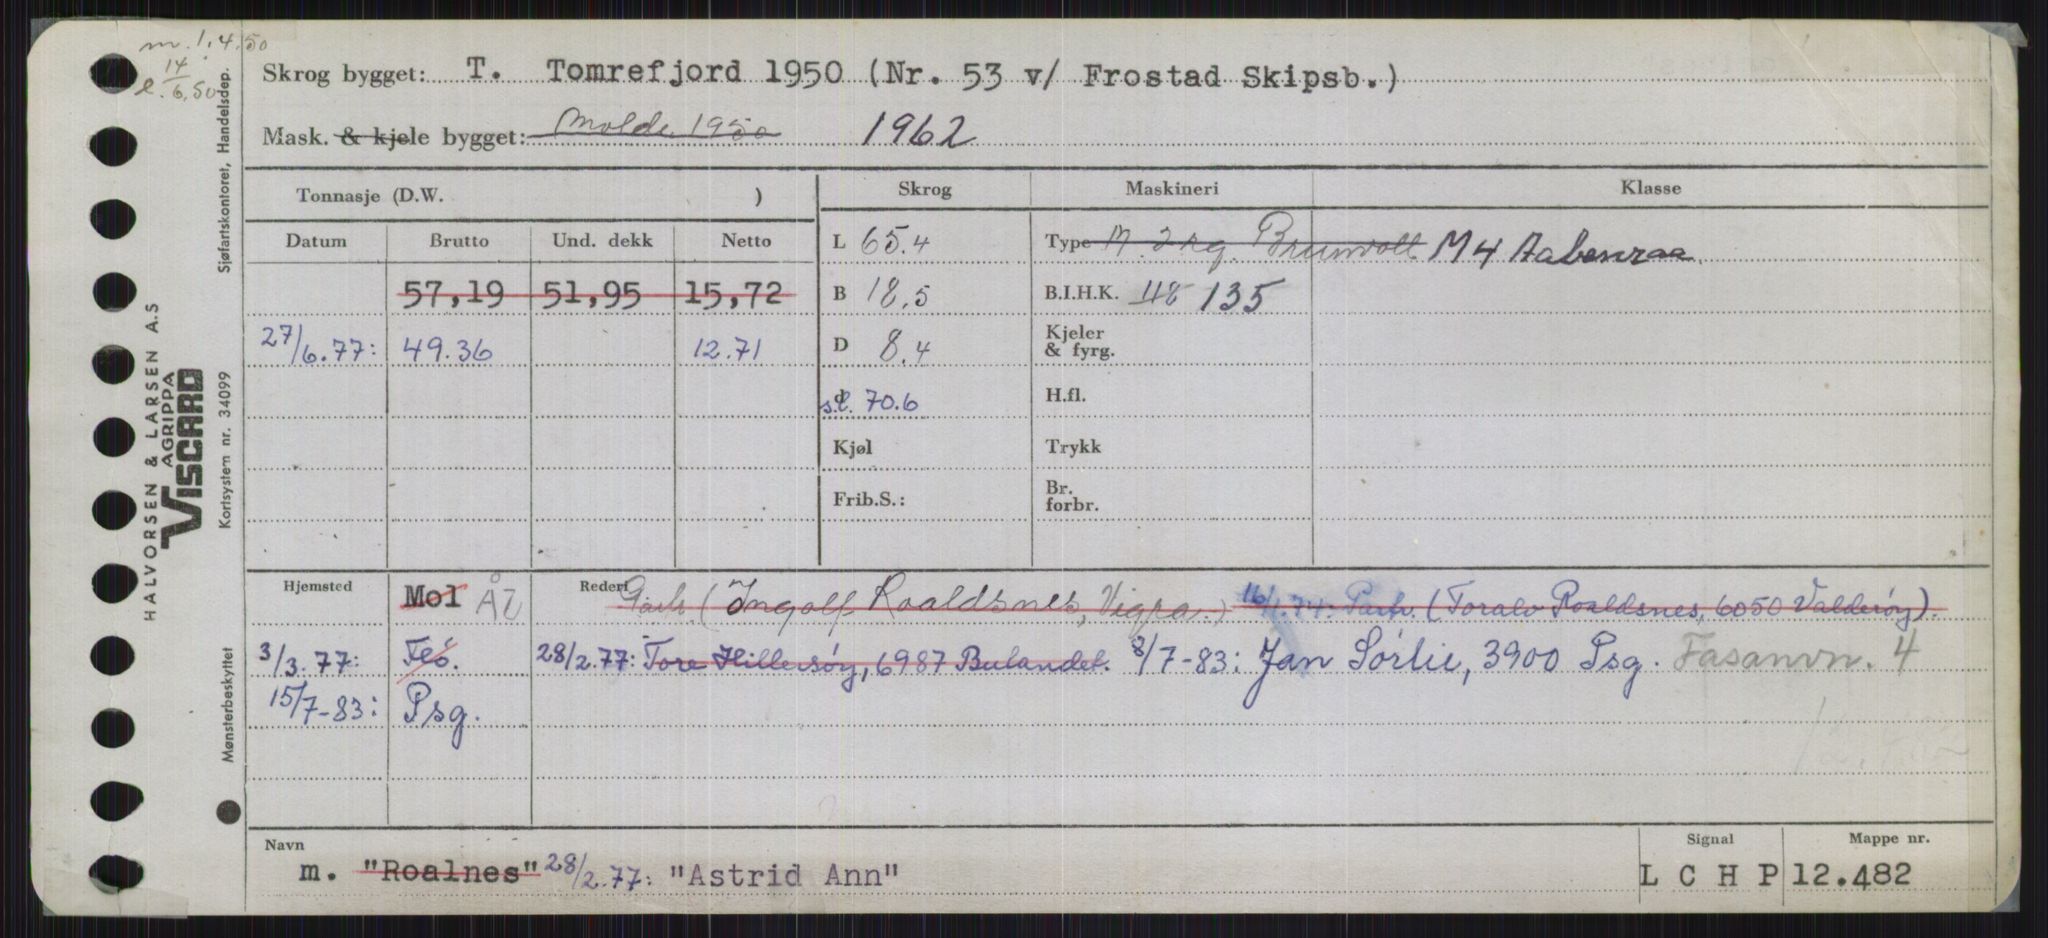 m. 1.4.50
14
l. 6.50
Skrog bygget: T. Tomrefjord 1950 (Nr. 53 v/ Frostad Skipsb.)
Mask. & kjele bygget: Molde 1950 1962
Tonnasje (D.W. )
Skrog Maskineri Klasse
Datum Brutto Und. dekk Netto
L 65.4 Type M. 2 Brunvoll M4 Aabenraa
57,19 51,95 15,72
B 18,5 B.I.H.K. 118 135
27/6.77: 49.36 12.71
D 8.4 Kjeler
& fyrg.
s.l. 70.6 H.fl.
Kjøl Trykk
Frib.S.: Br.
forbr.
Hjemsted Mol ÅL Rederi Partr. (Ingolf Roaldsnes, Vigra.) 16/1.74: Partr. (Toralv Roaldsnes, 6050 Valderøy).
3/3.77: Flö. 28/2.77: Tore Hillersøy, 6987 Bulandet. 8/7-83: Jan Sörlie, 3900 Psg. Fasanvn. 4
15/7-83: Psg.
Navn Signal Mappe nr.
m. "Roalnes" 28/2.77: "Astrid Ann" L C H P 12.482
HALVORSEN & LARSEN A.S
AGRIPPA
VISCARD
Kortsystem nr. 34099
Sjøfartskontoret, Handelsdep.
Mønsterbeskyttet